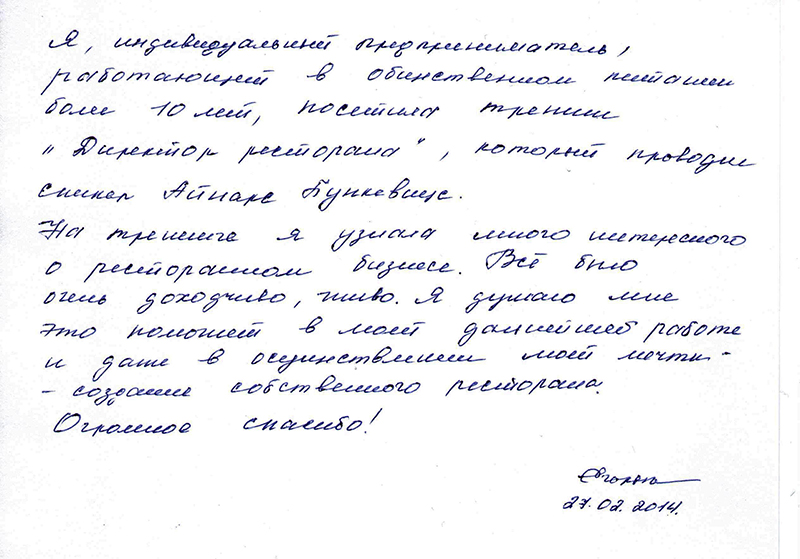 Я, индивидуальный предприниматель,
работающий в общественном питании
более 10 лет, посетила тренинг
„Директор ресторана", который проводил
спикер Айнарс Бункевицс.
На тренинге я узнала много интересного
о ресторанном бизнесе. Всё было
очень доходчиво, живо. Я думаю мне
это поможет в моей дальнейшей работе
и даже в осуществлении моей мечты -
- создание собственного ресторана.
Огромное спасибо!
27.02.2014.